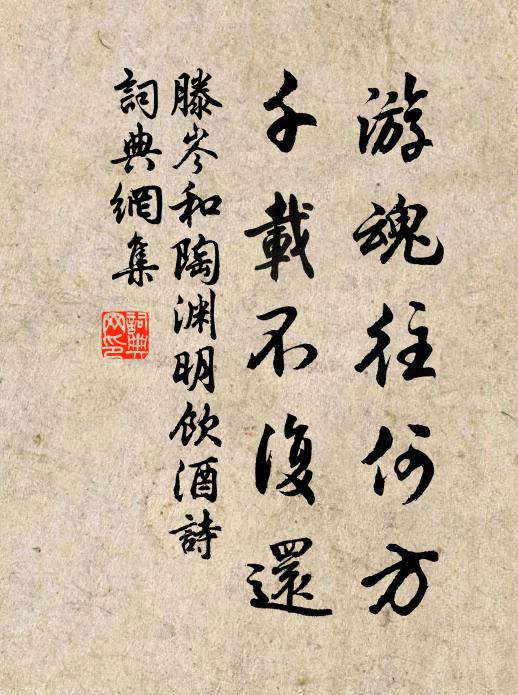 游魂往何方
千載不復還
滕岑和陶渊明飲酒詩
詞典網集
詞典網印